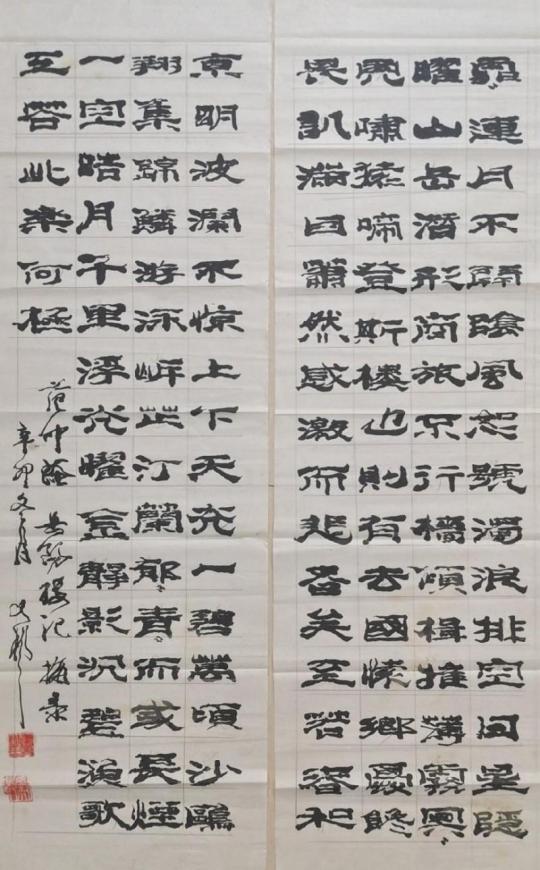 霏々連月不開陰風怒號濁浪排空日星隱
曜山岳潛形商旅不行檣傾楫摧薄冥々
虎嘯猿啼登斯樓也則有去國懷鄉憂讒
畏譏滿目蕭然感激而悲者矣至若春和
景明波瀾不驚上下天光一碧萬頃沙鷗
翔集錦鱗游泳岸芷汀蘭郁々青々而或長煙
一空皓月千里浮光曜金靜影沉璧漁歌
互答此樂何極
范仲淹 岳陽樓記 摘录
辛卯